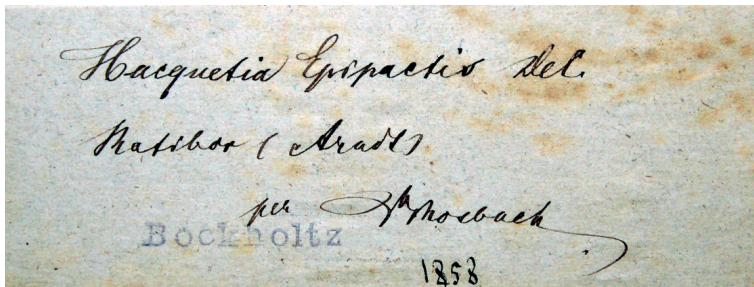 Hacquetia Epipactis Del.
Ratibor (Arndt)
per Mosbach
Bockholtz
1858